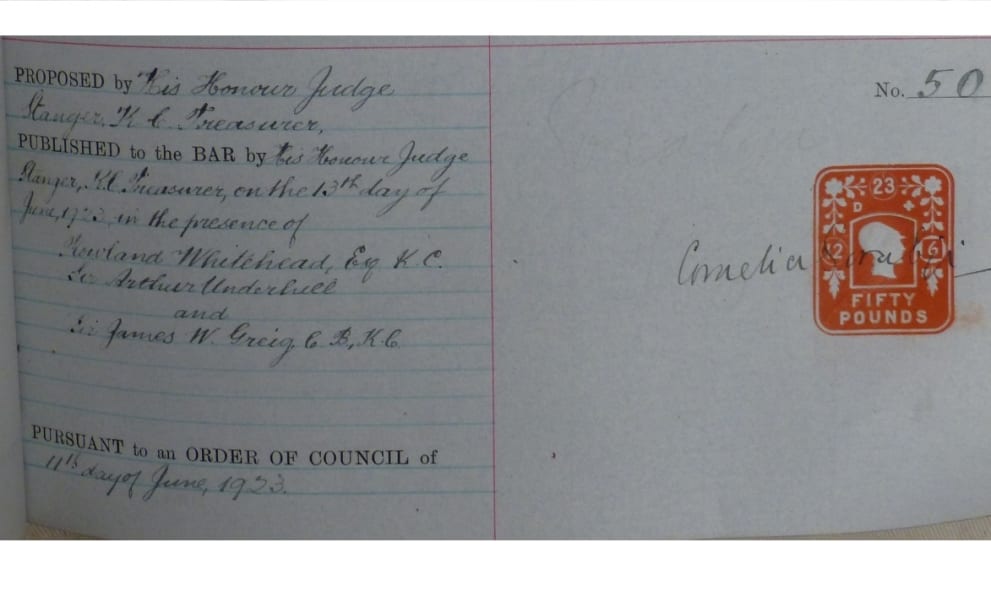 PROPOSED by His Honour Judge
Stanger, K C Treasurer,
PUBLISHED to the BAR by His Honour Judge
Stanger, KC Treasurer, on the 13th day of
June, 1923 in the presence of
Rowland Whitehead, Esq K.C.
Sir Arthur Underhill
and
Sir James W. Greig, C B, K.C.
PURSUANT to an ORDER OF COUNCIL of
11th day of June, 1923.
No. 50
Cornelia Sorabji
23
D
12 6
FIFTY
POUNDS